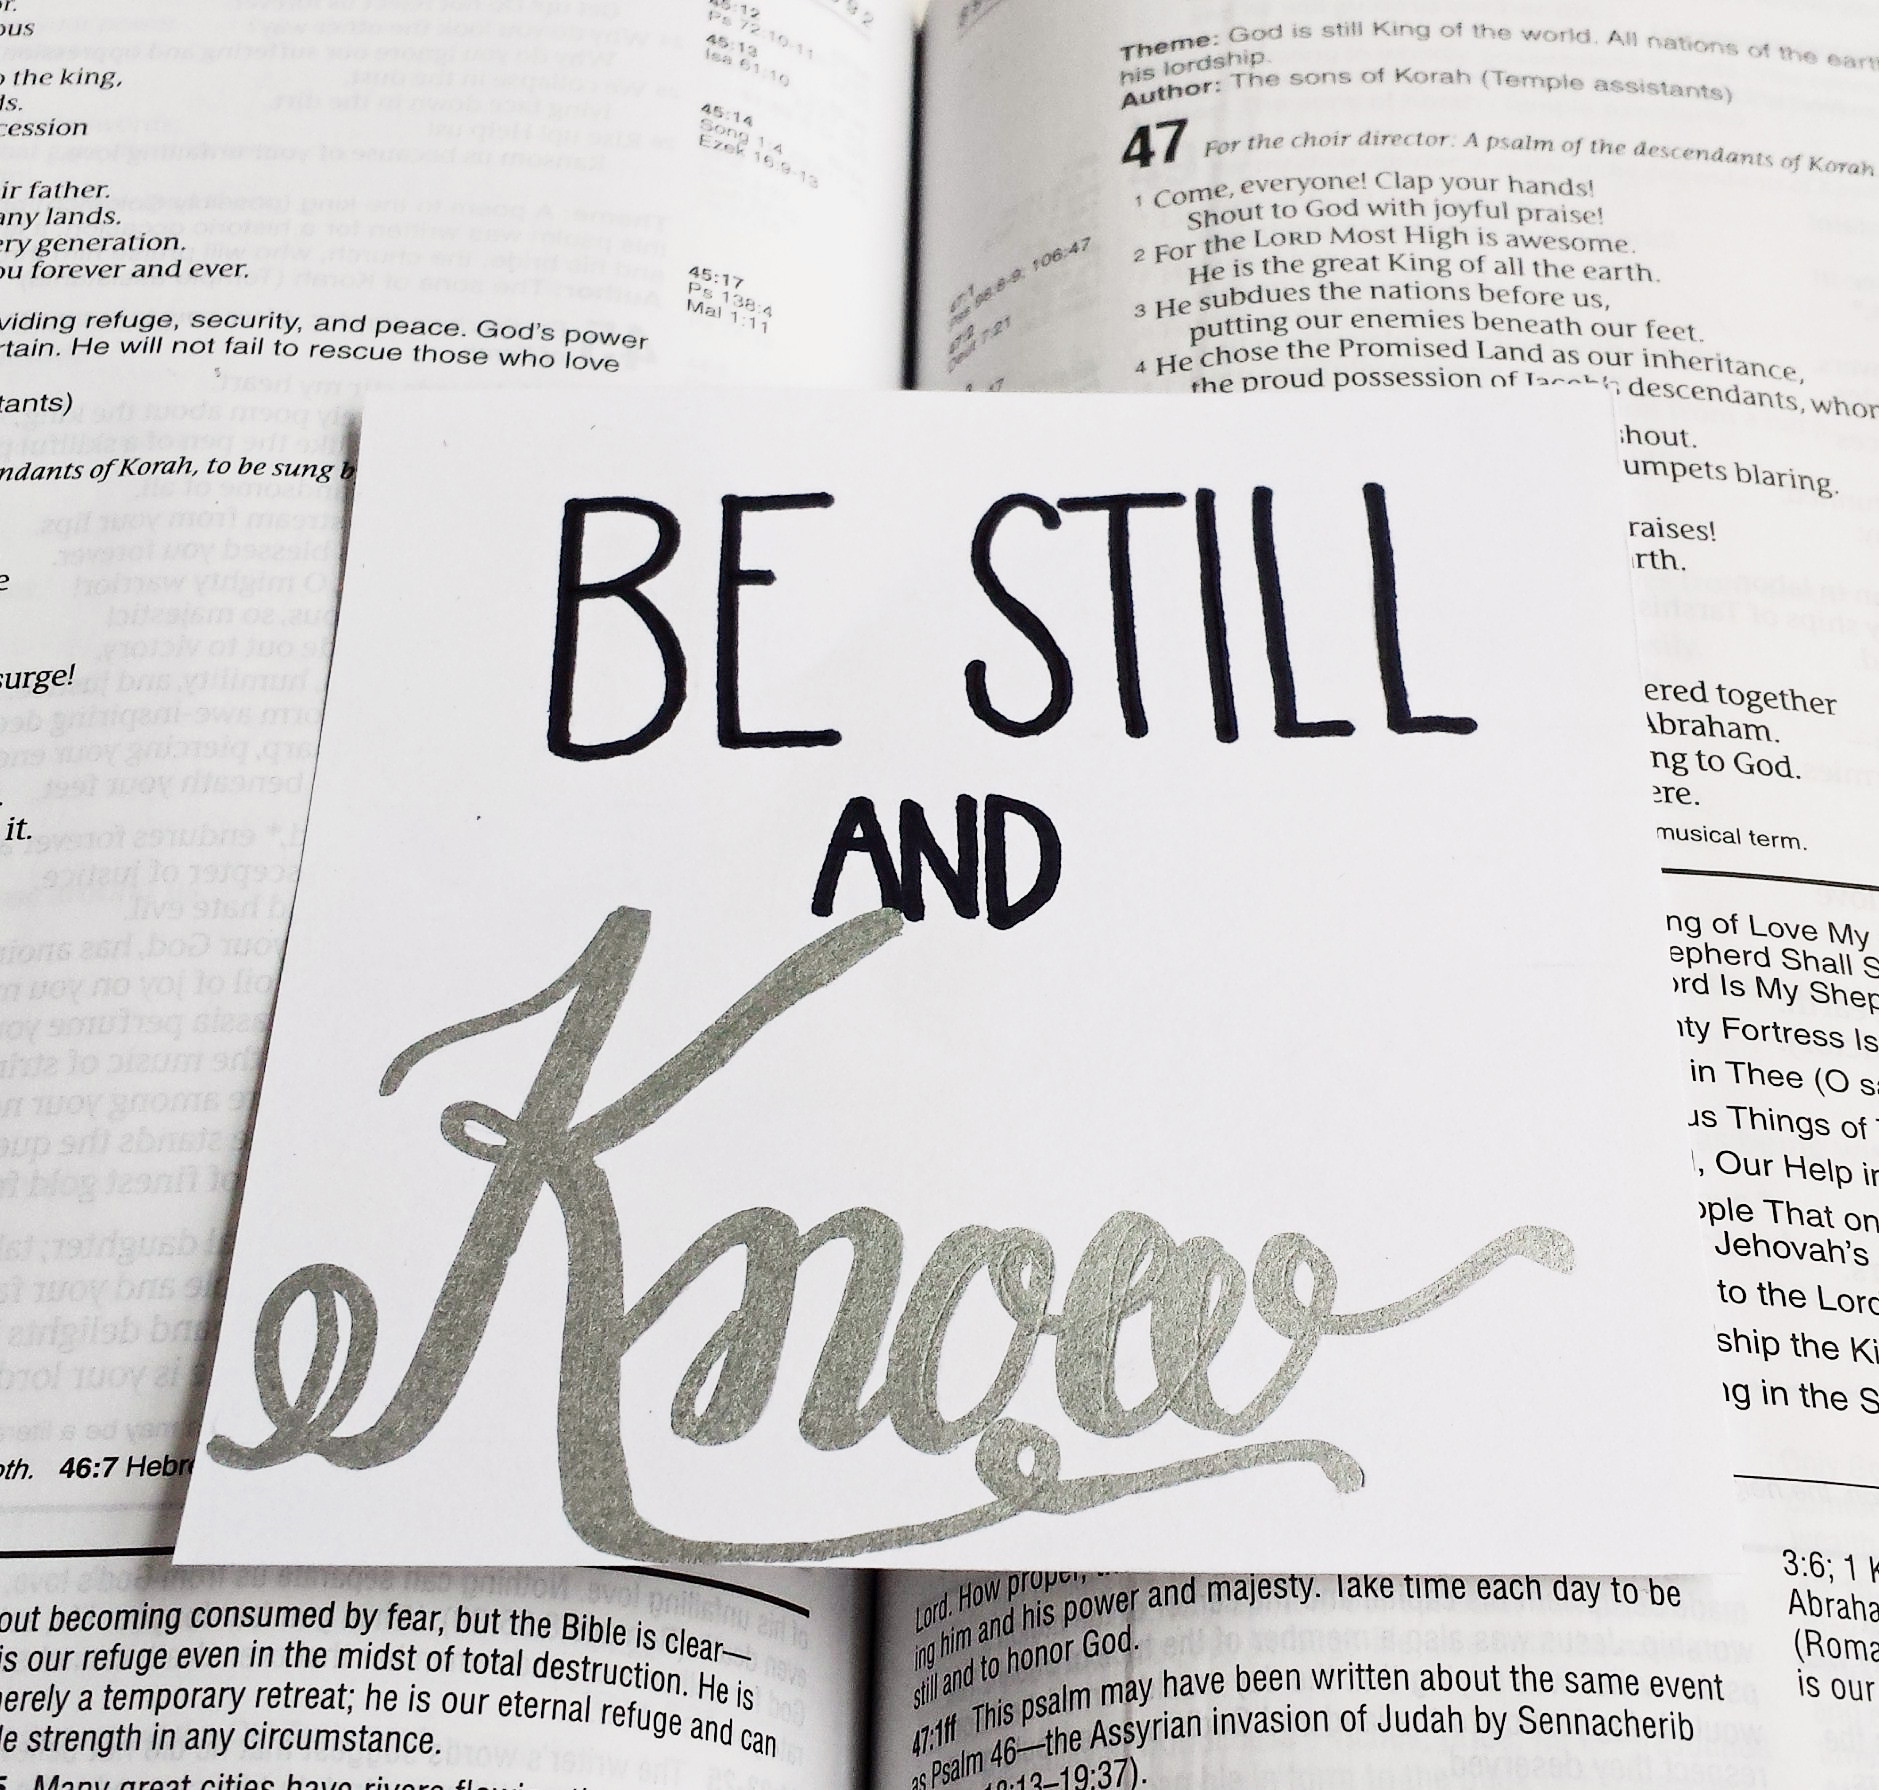 ous
the king,
cession
ir father.
any lands.
ery generation.
ou forever and ever.
viding refuge, security, and peace. God's power
rtain. He will not fail to rescue those who love
tants)
ndants of Korah, to be sung b
surge!
it.
45:12
Ps 72:10-11
45:13
Isa 61:10
45:14
Song 1:4
Ezek 16:9-13
45:17
Ps 138:4
Mal 1:11
Theme: God is still King of the world. All nations of the eart
his lordship.
Author: The sons of Korah (Temple assistants)
47 For the choir director: A psalm of the descendants of Korah
1 Come, everyone! Clap your hands!
Shout to God with joyful praise!
2 For the LORD Most High is awesome.
He is the great King of all the earth.
3 He subdues the nations before us,
putting our enemies beneath our feet.
4 He chose the Promised Land as our inheritance,
the proud possession of Jacob's descendants, whom
hout.
umpets blaring.
raises!
rth.
ered together
Abraham.
ng to God.
ere.
musical term.
BE STILL
AND
Know
ng of Love My
epherd Shall S
ord Is My Shep
ty Fortress Is
in Thee (O s
us Things of
, Our Help in
ople That on
Jehovah's
to the Lord
ship the Ki
ng in the S
oth. 46:7 Hebr
out becoming consumed by fear, but the Bible is clear—
is our refuge even in the midst of total destruction. He is
erely a temporary retreat; he is our eternal refuge and can
le strength in any circumstance.
Many great cities have rivers
Lord. How proper,
ing him and his power and majesty. Take time each day to be
still and to honor God.
47:1ff This psalm may have been written about the same event
as Psalm 46—the Assyrian invasion of Judah by Sennacherib
13–19:37).
3:6; 1
Abraha
(Roma
is our